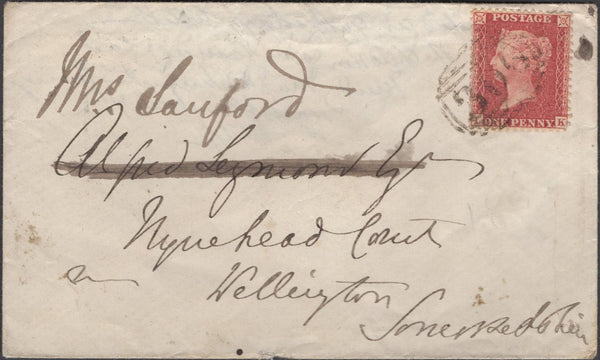 POSTAGE
ONE PENNY
K
Mrs Sanford
Alfred Seymour Esq
Nynehead Court
Wellington
Somersetshire